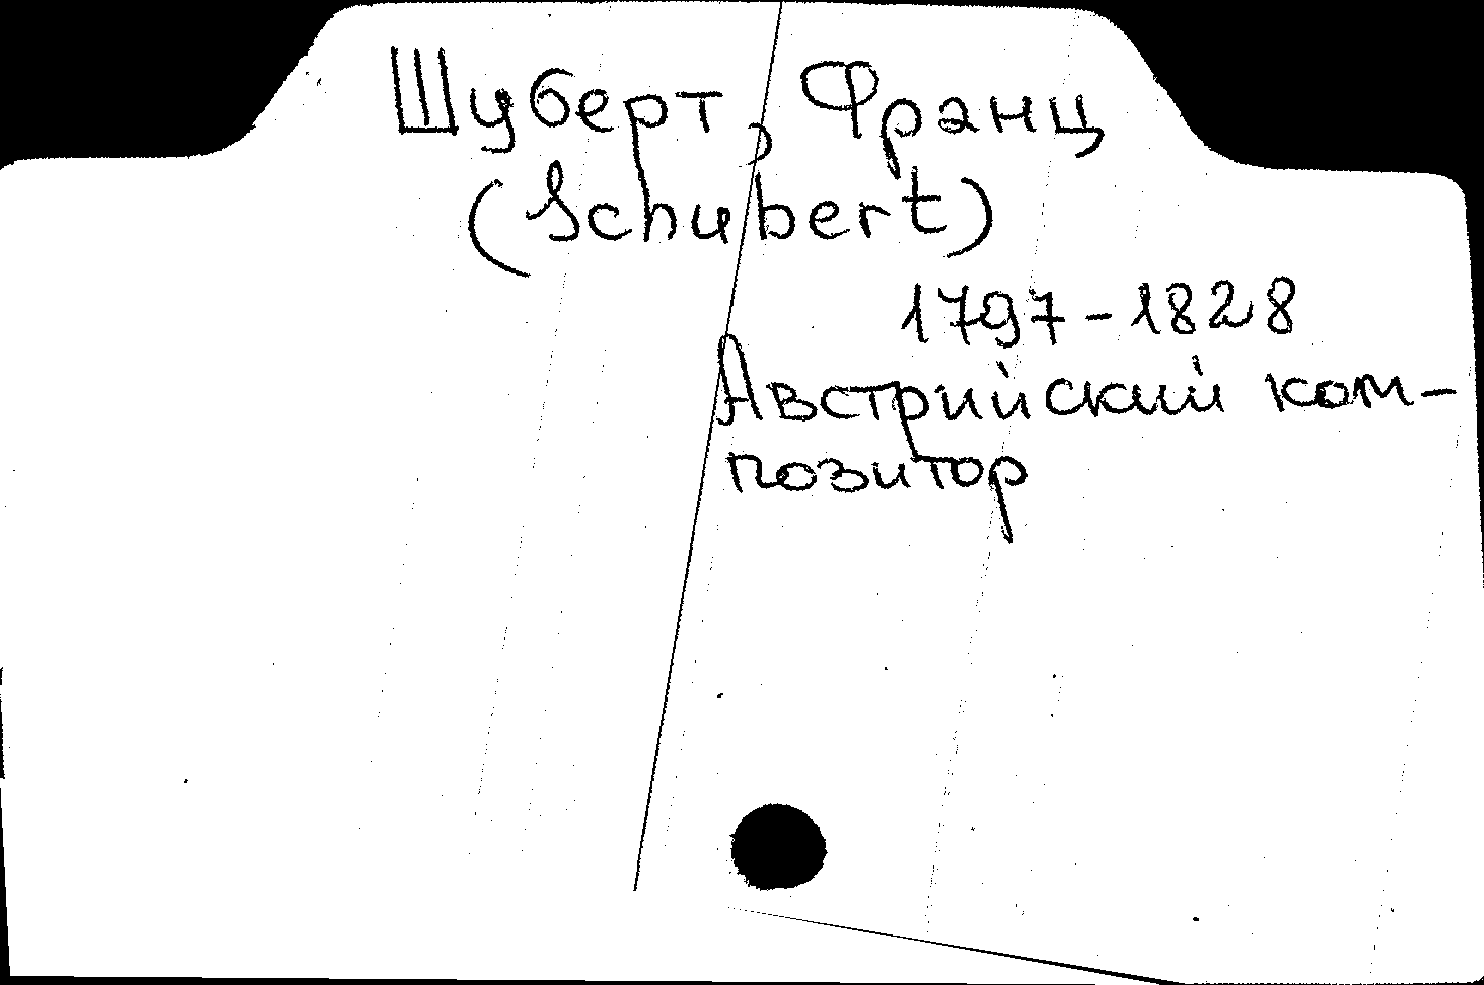 Шуберт, Франц
(Schubert)
1797-1828
Австрийский ком-
позитор